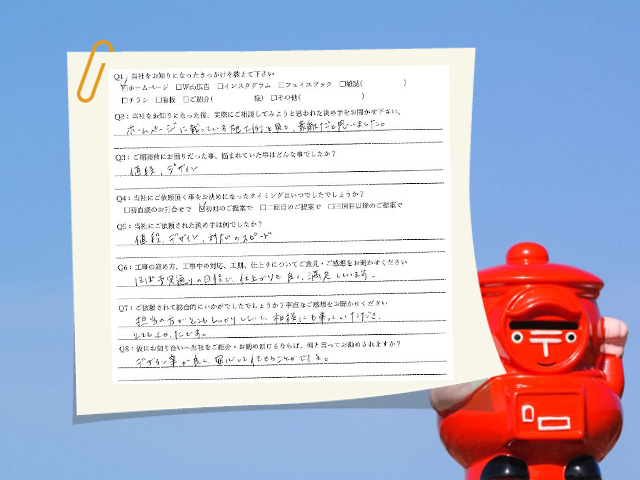 Q1：当社をお知りになったきっかけを教えて下さい
☑ホームページ □Web広告 □インスタグラム □フェイスブック □雑誌( )
□チラシ □看板 □ご紹介( 様) □その他( )
Q2：当社をお知りになった後、実際にご相談してみようと思われた決め手をお聞かせ下さい。
ホームページに載っている施工例を見て、素敵だと思いました。
Q3：ご相談前にお困りだった事、悩まれていた事はどんな事でしたか？
値段、デザイン
Q4：当社にご依頼頂く事をお決めになったタイミングはいつでしたでしょうか？
□初面談のお打合せで ☑初回のご提案で □二回目のご提案で □三回目以後のご提案で
Q5：当社にご依頼された決め手は何でしたか？
値段、デザイン、対応のスピード
Q6：工事の進め方、工事中の対応、工期、仕上りについてご意見・ご感想をお聞かせください
ほぼ予定通りの日程で、仕上がりも良く、満足しています。
Q7：ご依頼されて総合的にいかがでしたでしょうか？率直なご感想をお聞かせください
担当の方がとてもしっかりしていて、相談にも乗っていただき、
とてもよかったです。
Q8：仮にお知り合いへ当社をご紹介・お勧め頂けるならば、何と言ってお勧めされますか？
デザイン案が良く、安心してまかせることができる。